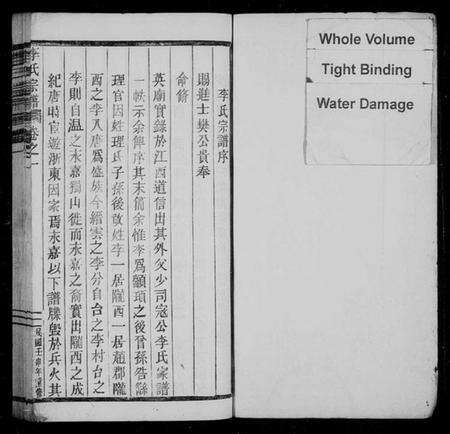 李氏宗譜序
賜進士樊公貴奉
命脩
英廟實錄於江西道信出其外父少司寇公李氏家譜
一帙示余俾序其末簡余惟李爲顓頊之後晉孫咎繇
理官因姓理氏子孫後敀姓李一居隴西一居趙郡隴
西之李入唐爲盛族今縉雲之李分自台之李村台之
李則自溫之永嘉楊山徙而永嘉之裔實出隴西之成
紀唐時官遊浙東因家焉永嘉以下譜牒毀於兵火其
李氏宗譜
卷之一
民國壬午年重修
Whole Volume
Tight Binding
Water Damage